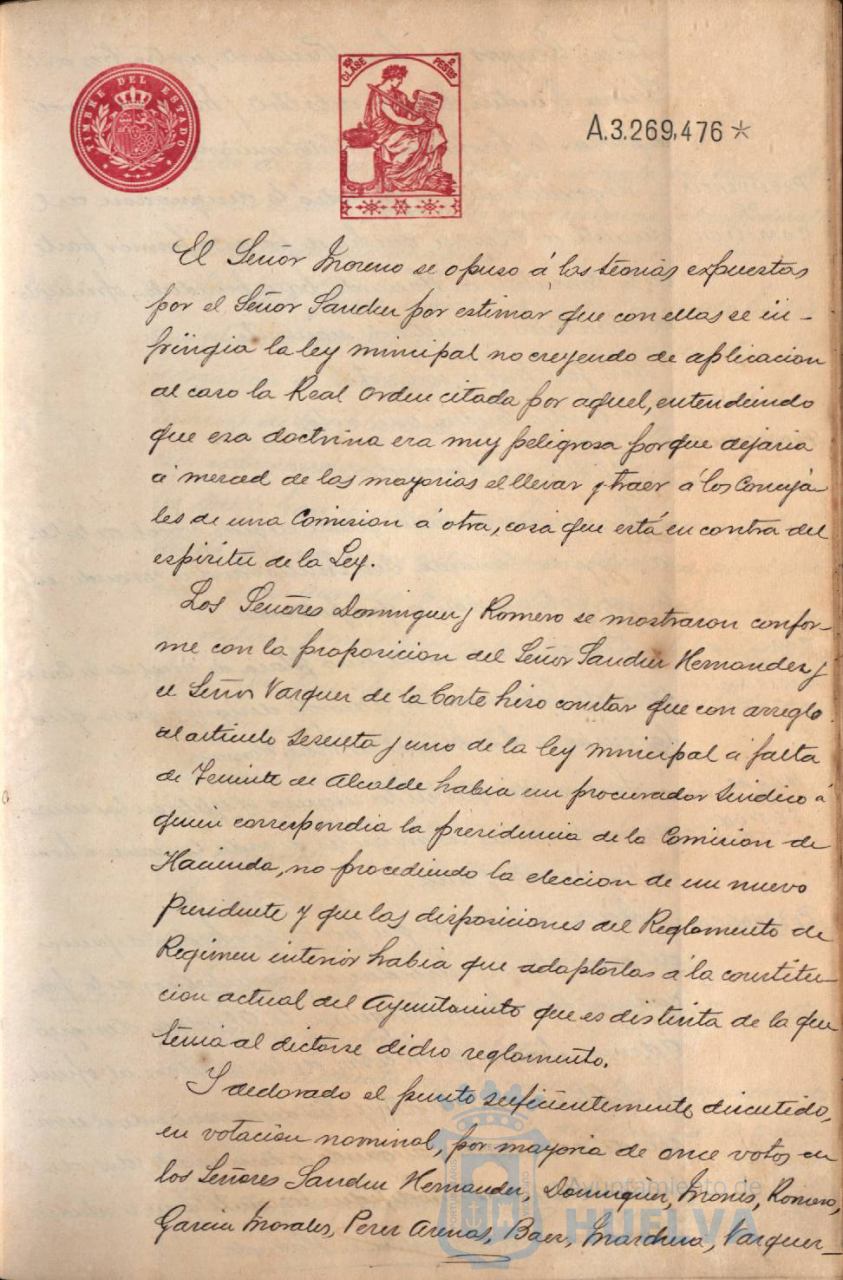 TIMBRE DEL ESTADO
10ª CLASE 2 PESETAS
A.3.269,476 *
El Señor Moreno se opuso á las teorias expuestas
por el Señor Sanchez por estimar que con ellas se in-
fringia la ley municipal no creyendo de aplicacion
al caso la Real orden citada por aquel, entendiendo
que esa doctrina era muy peligrosa porque dejaria
á merced de las mayorias el llevar y traer á los Conceja-
les de una Comision á otra, cosa que está en contra del
espiritu de la Ley.
Los Señores Dominguez y Romero se mostraron confor-
me con la proposicion del Señor Sanchez Hernandez y
el Señor Vazquez de la Corte hizo constar que con arreglo
al articulo sesenta y uno de la ley municipal á falta
de Teniente de Alcalde habia un procurador Sindico á
quien correspondia la presidencia de la Comision de
Hacienda, no procediendo la eleccion de un nuevo
Presidente y que las disposiciones del Reglamento de
Regimen interior habia que adaptarlas á la constitu-
cion actual del Ayuntamiento que es distinta de la que
tenia al dictarse dicho reglamento.
Y declarado el punto suficientemente discutido,
en votacion nominal, por mayoria de once votos en
los Señores Sanchez Hernandez, Dominguez, Mones, Romero,
Garcia Morales, Perez Arenas, Baez, Marchena, Vazquez
Ayuntamiento de
HUELVA